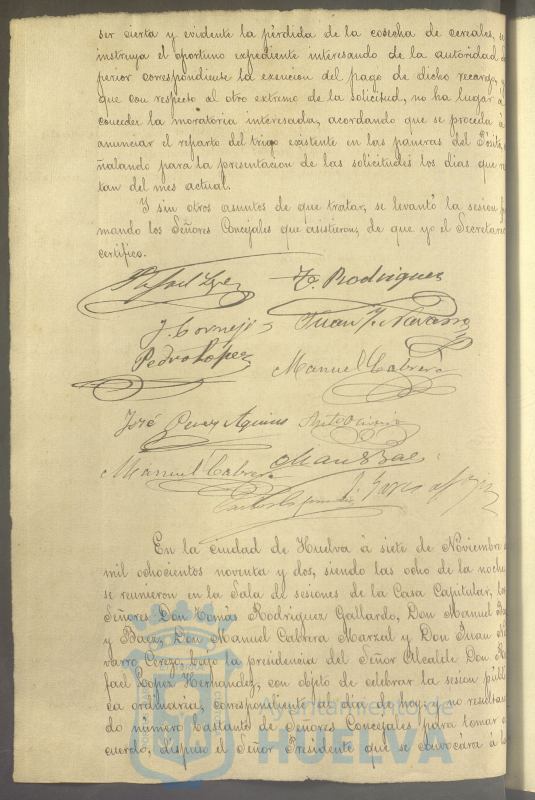 ser cierta y evidente la pérdida de la cosecha de cereales, se
instruya el oportuno expediente interesando de la autoridad
perior correspondiente la exencion del pago de dicho recargo, y
que con respecto al otro extremo de la solicitud, no ha lugar á
conceder la moratoria interesada, acordando que se proceda á
anunciar el reparto del trigo existente en las paneras del Pósito
ñalando para la presentacion de las solicitudes los dias que
tan del mes actual.
Y sin otros asuntos de que tratar, se levantó la sesion
mando los Señores Concejales que asistieron; de que yo el Secretario
certifico.
Rafael Lopez
T. Rodriguez
J. Cornejo
Juan J. Navarro
Pedro Lópe
Manuel Cabrera
José Perez
Manuel Cabrera
Man Baez
En la ciudad de Huelva á siete de Noviembre
mil ochocientos noventa y dos, siendo las ocho de la noche
se reunieron en la Sala de sesiones de la Casa Capitular, los
Señores Don Tomás Rodriguez Gallardo, Don Manuel
y Baez, Don Manuel Cabrera Marzal y Don Juan
varro Cerezo, bajo la presidencia del Señor Alcalde Don
fael Lopez Hernandez, con objeto de celebrar la sesion públi
ca ordinaria, correspondiente al dia de hoy, y no resultan
do número bastante de Señores Concejales para tomar
cuerdo, dispuso el Señor Presidente que se convocára á
Ayuntamiento de
HUELVA